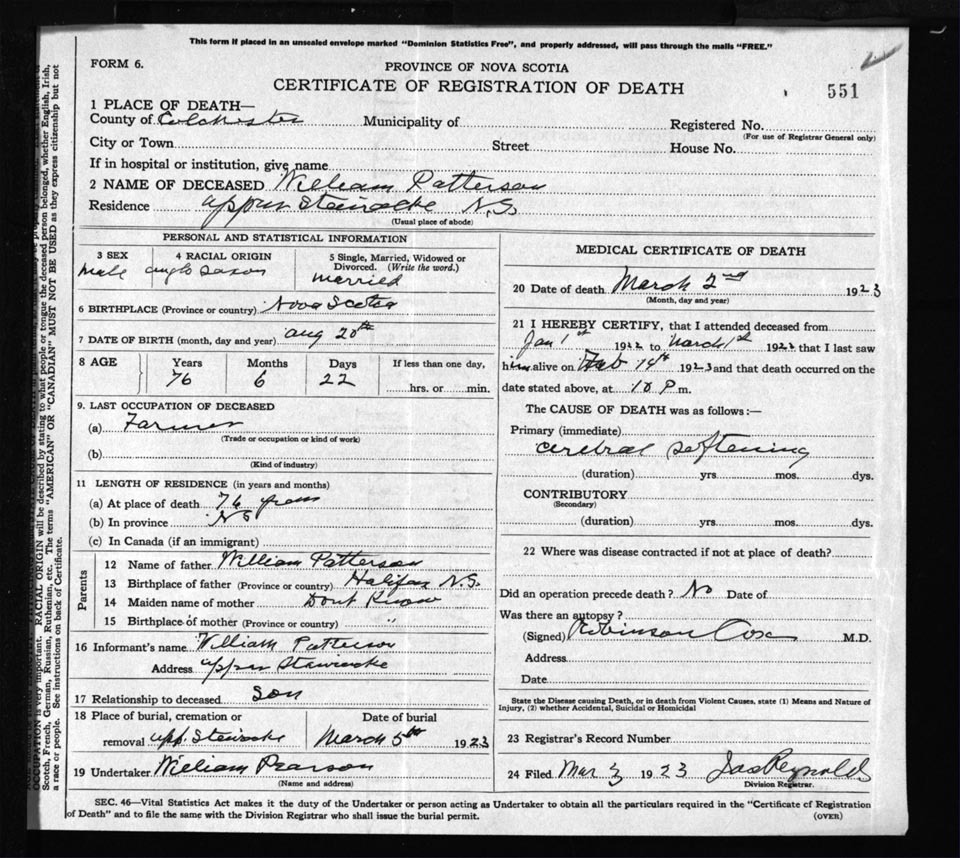 This form if placed in an unsealed envelope marked "Dominion Statistics Free", and properly addressed, will pass through the mails "FREE."
FORM 6.
PROVINCE OF NOVA SCOTIA
CERTIFICATE OF REGISTRATION OF DEATH
551
1 PLACE OF DEATH—
County of Colchester Municipality of Registered No.
(For use of Registrar General only)
City or Town Street House No.
If in hospital or institution, give name
2 NAME OF DECEASED William Patterson
Residence Upper Stewiacke N.S.
(Usual place of abode)
PERSONAL AND STATISTICAL INFORMATION
3 SEX 4 RACIAL ORIGIN 5 Single, Married, Widowed or Divorced. (Write the word.)
male anglo saxon married
6 BIRTHPLACE (Province or country) Nova Scotia
7 DATE OF BIRTH (month, day and year) aug 20th
8 AGE Years Months Days If less than one day,
76 6 22 hrs. or min.
9. LAST OCCUPATION OF DECEASED
(a) Farmer
(Trade or occupation or kind of work)
(b)
(Kind of industry)
11 LENGTH OF RESIDENCE (in years and months)
(a) At place of death 76 years
(b) In province NS
(c) In Canada (if an immigrant)
Parents
12 Name of father William Patterson
13 Birthplace of father (Province or country) Halifax N.S.
14 Maiden name of mother Dont Know
15 Birthplace of mother (Province or country) "
16 Informant's name William Patterson
Address upper Stewiacke
17 Relationship to deceased son
18 Place of burial, cremation or Date of burial
removal upp. Stewiacke March 5th 1923
19 Undertaker William Pearson
(Name and address)
MEDICAL CERTIFICATE OF DEATH
20 Date of death March 2nd 1923
(Month, day and year)
21 I HEREBY CERTIFY, that I attended deceased from
Jan 1st 1922 to March 1st 1923 that I last saw
him alive on Feb 14th 1923 and that death occurred on the
date stated above, at 10 P.m.
The CAUSE OF DEATH was as follows:—
Primary (immediate)
cerebral softening
(duration) yrs. mos. dys.
CONTRIBUTORY
(Secondary)
(duration) yrs. mos. dys.
22 Where was disease contracted if not at place of death?
Did an operation precede death? No Date of
Was there an autopsy?
(Signed) Robinson Cox M.D.
Address
Date
State the Disease causing Death, or in death from Violent Causes, state (1) Means and Nature of
Injury, (2) whether Accidental, Suicidal or Homicidal
23 Registrar's Record Number
24 Filed Mar 3 1923 Jas Reynolds
Division Registrar.
SEC. 46—Vital Statistics Act makes it the duty of the Undertaker or person acting as Undertaker to obtain all the particulars required in the "Certificate of Registration
of Death" and to file the same with the Division Registrar who shall issue the burial permit.
(OVER)
OCCUPATION is very important. RACIAL ORIGIN will be described by stating to what people or tongue the deceased person belonged, whether English, Irish,
Scotch, French, German, Russian, Ruthenian, etc. The terms "AMERICAN" OR "CANADIAN" MUST NOT BE USED as they express citizenship but not
a race or people. See instructions on back of Certificate.